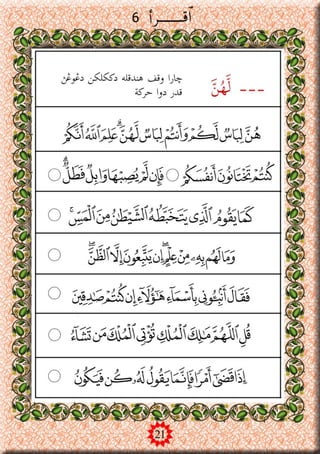 ٱقـــــرأ 6
--- لَّهُنَّ
چارا وقف هندقله دککلکن دغوغن
قدر دوا حركة
هُنَّ لِبَاسٌ لَّكُمْ وَأَنتُمْ لِبَاسٌ لَّهُنَّ ۗ عَلِمَ ٱللَّهُ أَنَّكُمْ
كُنتُمْ تَخْتَانُونَ أَنفُسَكُمْ ○ فَإِن لَّمْ يُصِبْهَا وَابِلٌ فَطَلٌّ ۗ ○
كَمَا يَقُومُ ٱلَّذِى يَتَخَبَّطُهُ ٱلشَّيْطَٰنُ مِنَ ٱلْمَسِّ ۚ ○
وَمَا لَهُم بِهِۦ مِنْ عِلْمٍ ۖ إِن يَتَّبِعُونَ إِلَّا ٱلظَّنَّ ۖ ○
فَقَالَ أَنۢبِـُٔونِى بِأَسْمَآءِ هَٰٓؤُلَآءِ إِن كُنتُمْ صَٰدِقِينَ ○
قُلِ ٱللَّهُمَّ مَٰلِكَ ٱلْمُلْكِ تُؤْتِى ٱلْمُلْكَ مَن تَشَآءُ ○
إِذَا قَضَىٰٓ أَمْرًا فَإِنَّمَا يَقُولُ لَهُۥ كُن فَيَكُونُ ○
21